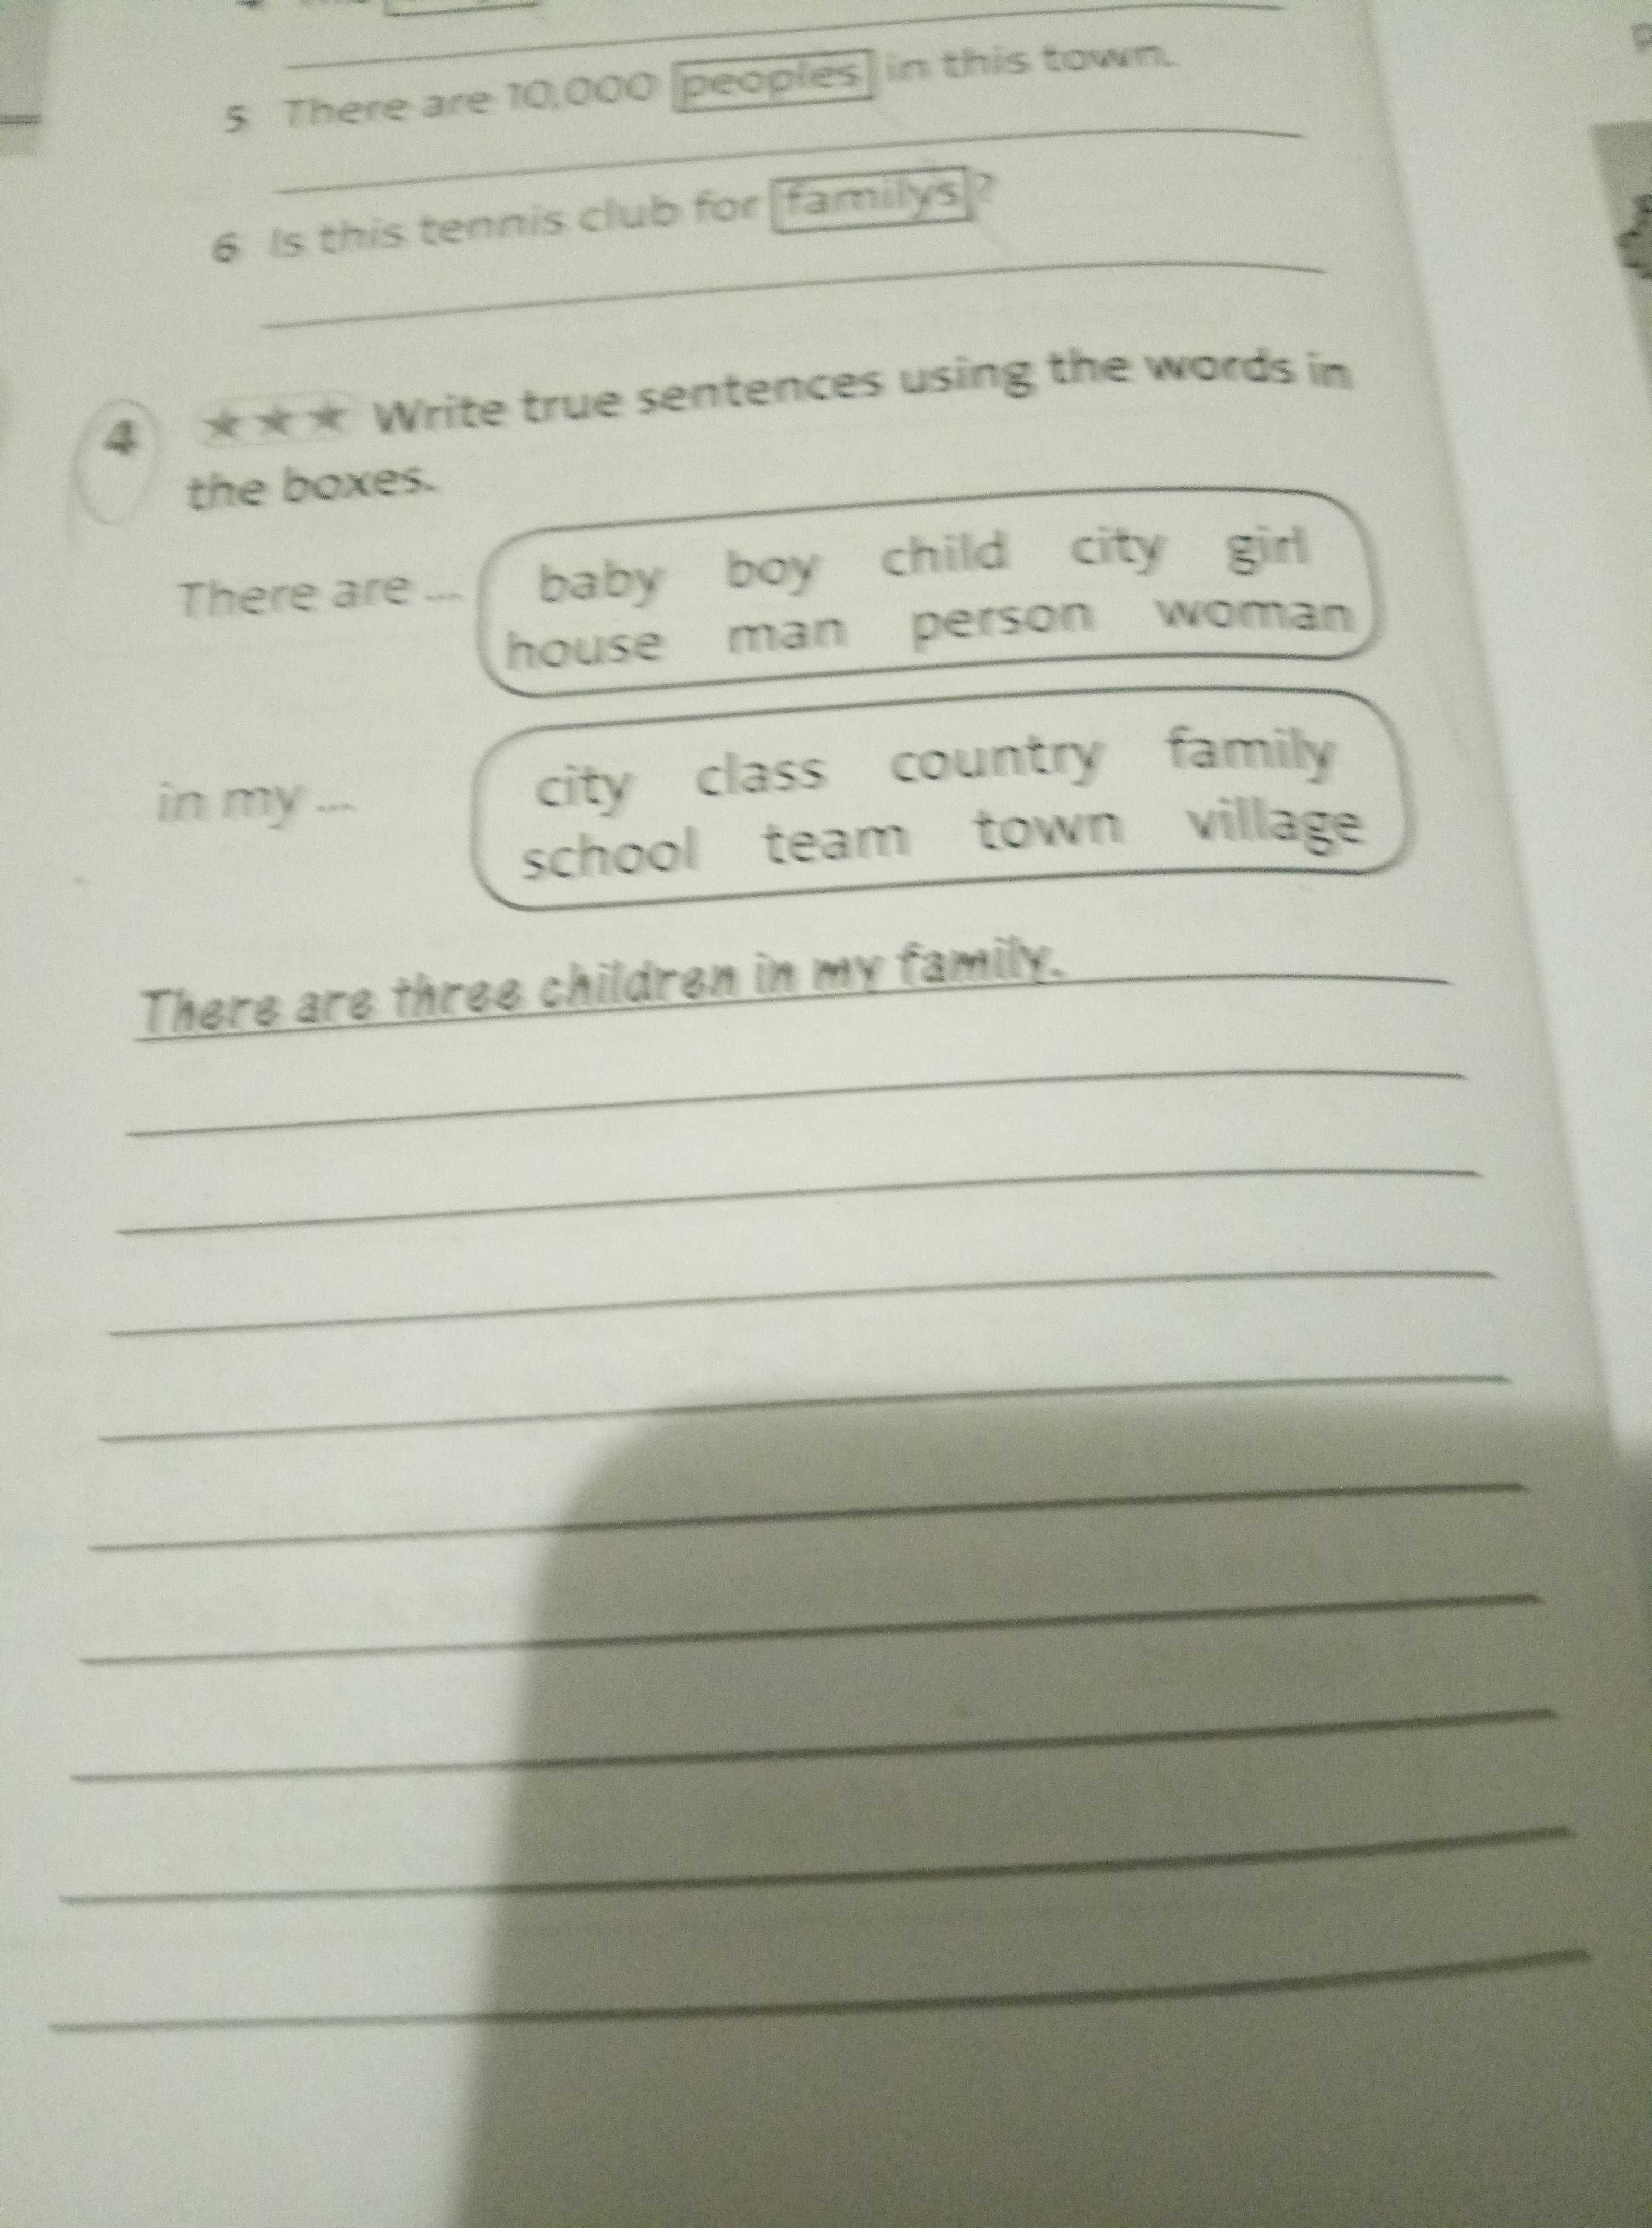 5 There are 10,000 peoples in this town.
6 Is this tennis club for familys?
4 ★★★ Write true sentences using the words in
the boxes.
There are ... baby boy child city girl
house man person woman
in my ... city class country family
school team town village
There are three children in my family.